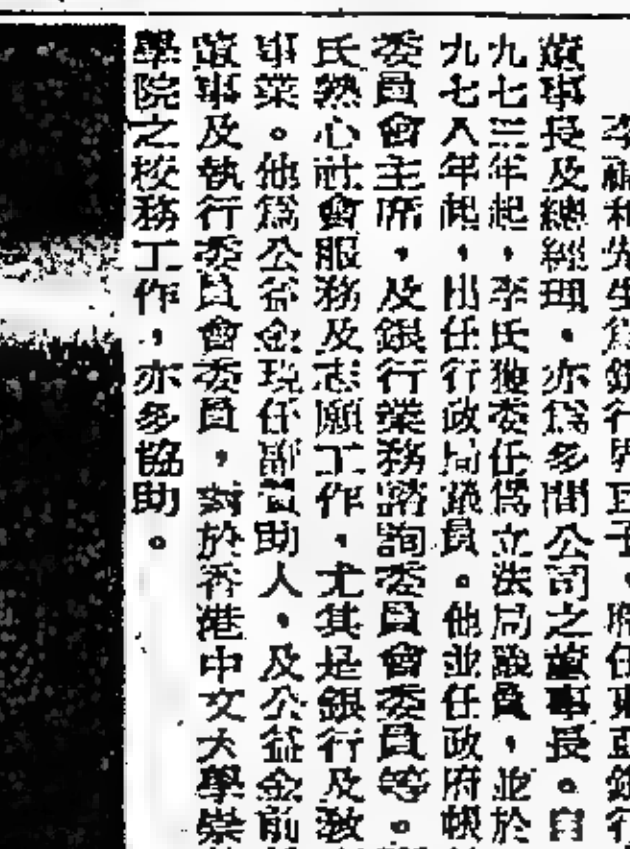 李福和先生為銀行界巨子，席任東亞銀行
董事長及總經理，亦為多間公司之董事長。自
九七三年起，李氏獲委任為立法局議員，並於
九七八年起，出任行政局議員。他並任政府帳
委員會主席，及銀行業務諮詢委員會委員等。
氏熱心社會服務及志願工作，尤其是銀行及教
事業。他為公益金現任副贊助人，及公益金前
董事及執行委員會委員，對於香港中文大學崇
學院之校務工作，亦多協助。